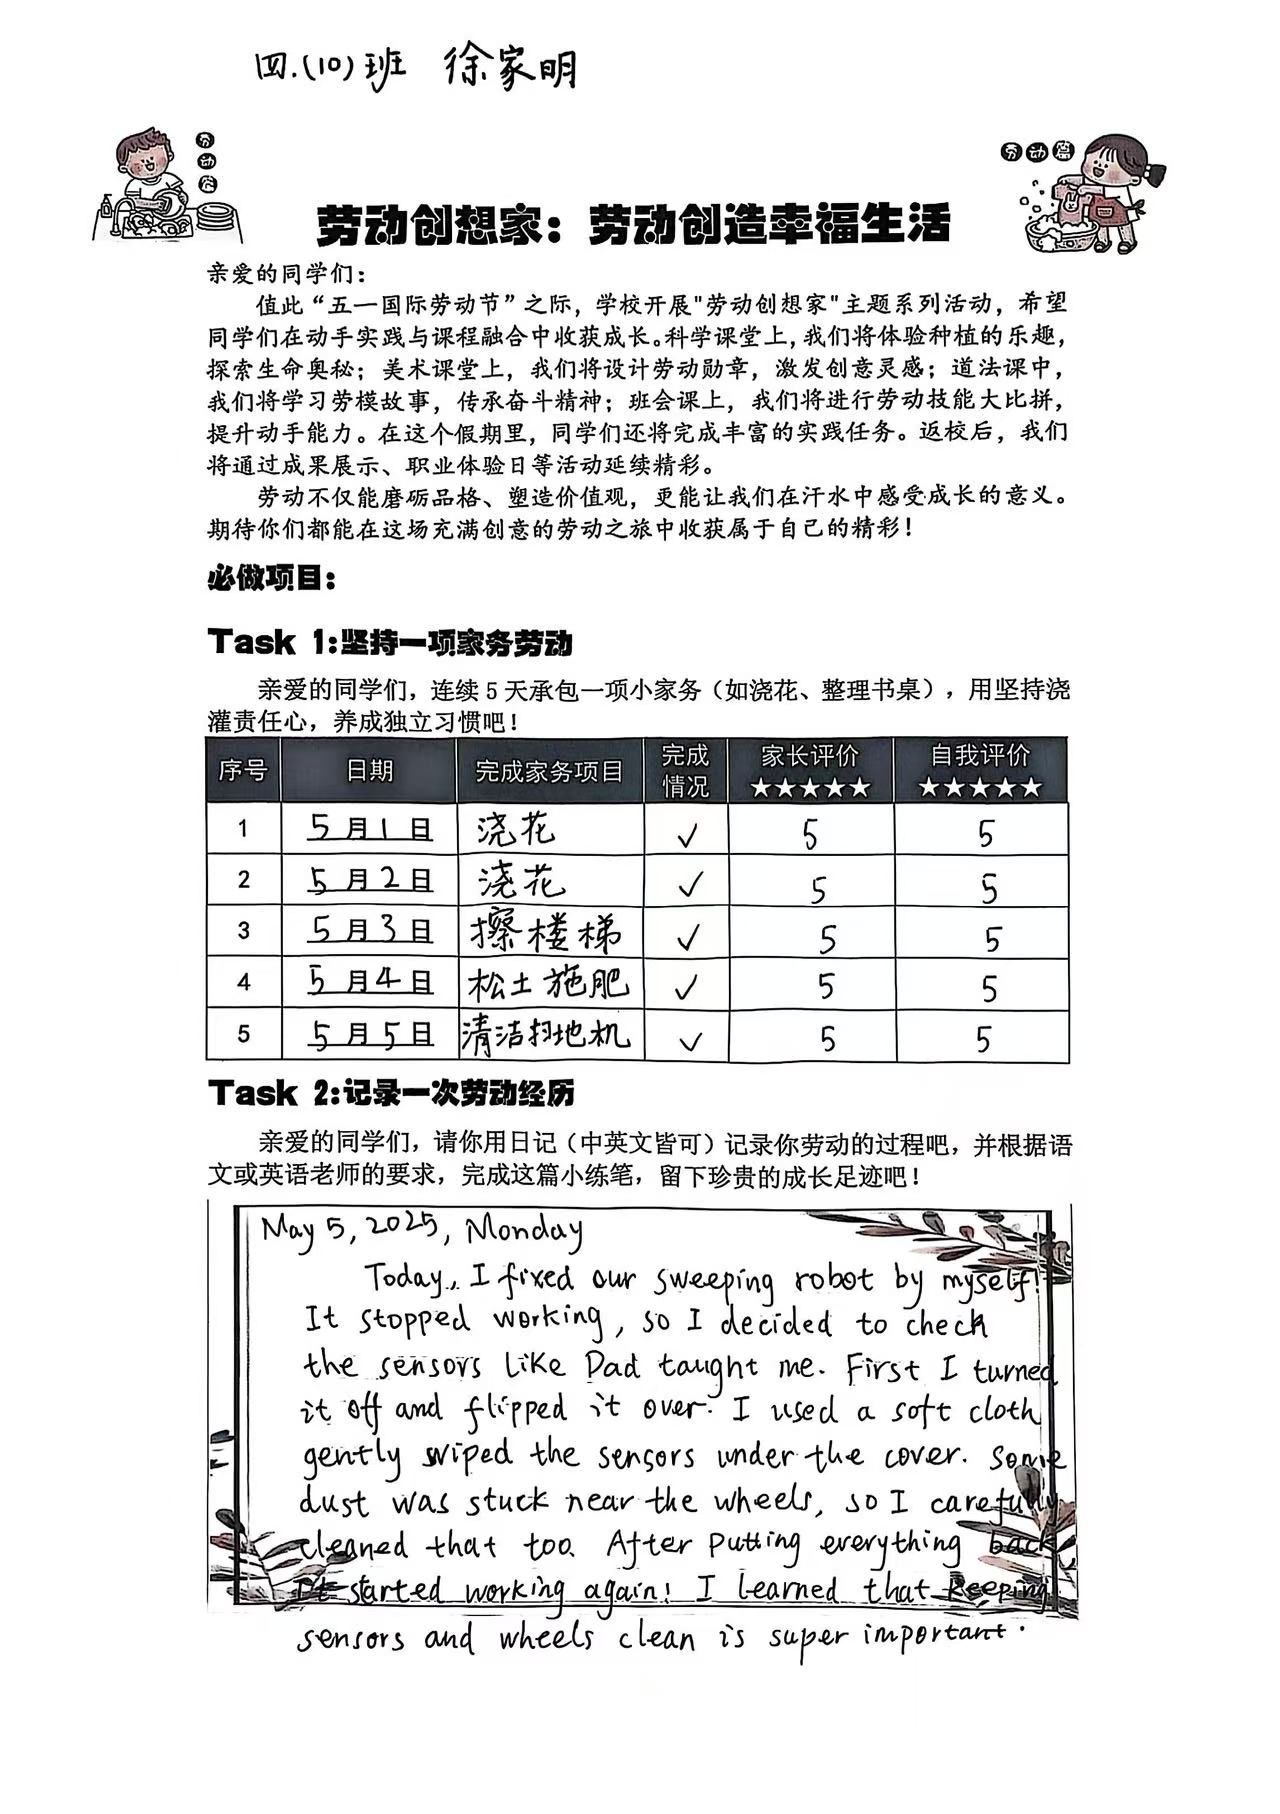 四.(10)班 徐家明
劳动篇
劳动篇
劳动创想家：劳动创造幸福生活
亲爱的同学们：
值此“五一国际劳动节”之际，学校开展"劳动创想家"主题系列活动，希望
同学们在动手实践与课程融合中收获成长。科学课堂上，我们将体验种植的乐趣，
探索生命奥秘；美术课堂上，我们将设计劳动勋章，激发创意灵感；道法课中，
我们将学习劳模故事，传承奋斗精神；班会课上，我们将进行劳动技能大比拼，
提升动手能力。在这个假期里，同学们还将完成丰富的实践任务。返校后，我们
将通过成果展示、职业体验日等活动延续精彩。
劳动不仅能磨砺品格、塑造价值观，更能让我们在汗水中感受成长的意义。
期待你们都能在这场充满创意的劳动之旅中收获属于自己的精彩！
必做项目：
Task 1:坚持一项家务劳动
亲爱的同学们，连续5天承包一项小家务（如浇花、整理书桌），用坚持浇
灌责任心，养成独立习惯吧！
序号 日期 完成家务项目 完成情况 家长评价★★★★★ 自我评价★★★★★
1 5月1日 浇花 ✓ 5 5
2 5月2日 浇花 ✓ 5 5
3 5月3日 擦楼梯 ✓ 5 5
4 5月4日 松土施肥 ✓ 5 5
5 5月5日 清洁扫地机 ✓ 5 5
Task 2:记录一次劳动经历
亲爱的同学们，请你用日记（中英文皆可）记录你劳动的过程吧，并根据语
文或英语老师的要求，完成这篇小练笔，留下珍贵的成长足迹吧！
May 5, 2025, Monday
Today, I fixed our sweeping robot by myself!
It stopped working, so I decided to check
the sensors like Dad taught me. First I turned
it off and flipped it over. I used a soft cloth
gently wiped the sensors under the cover. Some
dust was stuck near the wheels, so I carefully
cleaned that too. After putting everything back,
It started working again! I learned that keeping
sensors and wheels clean is super important.